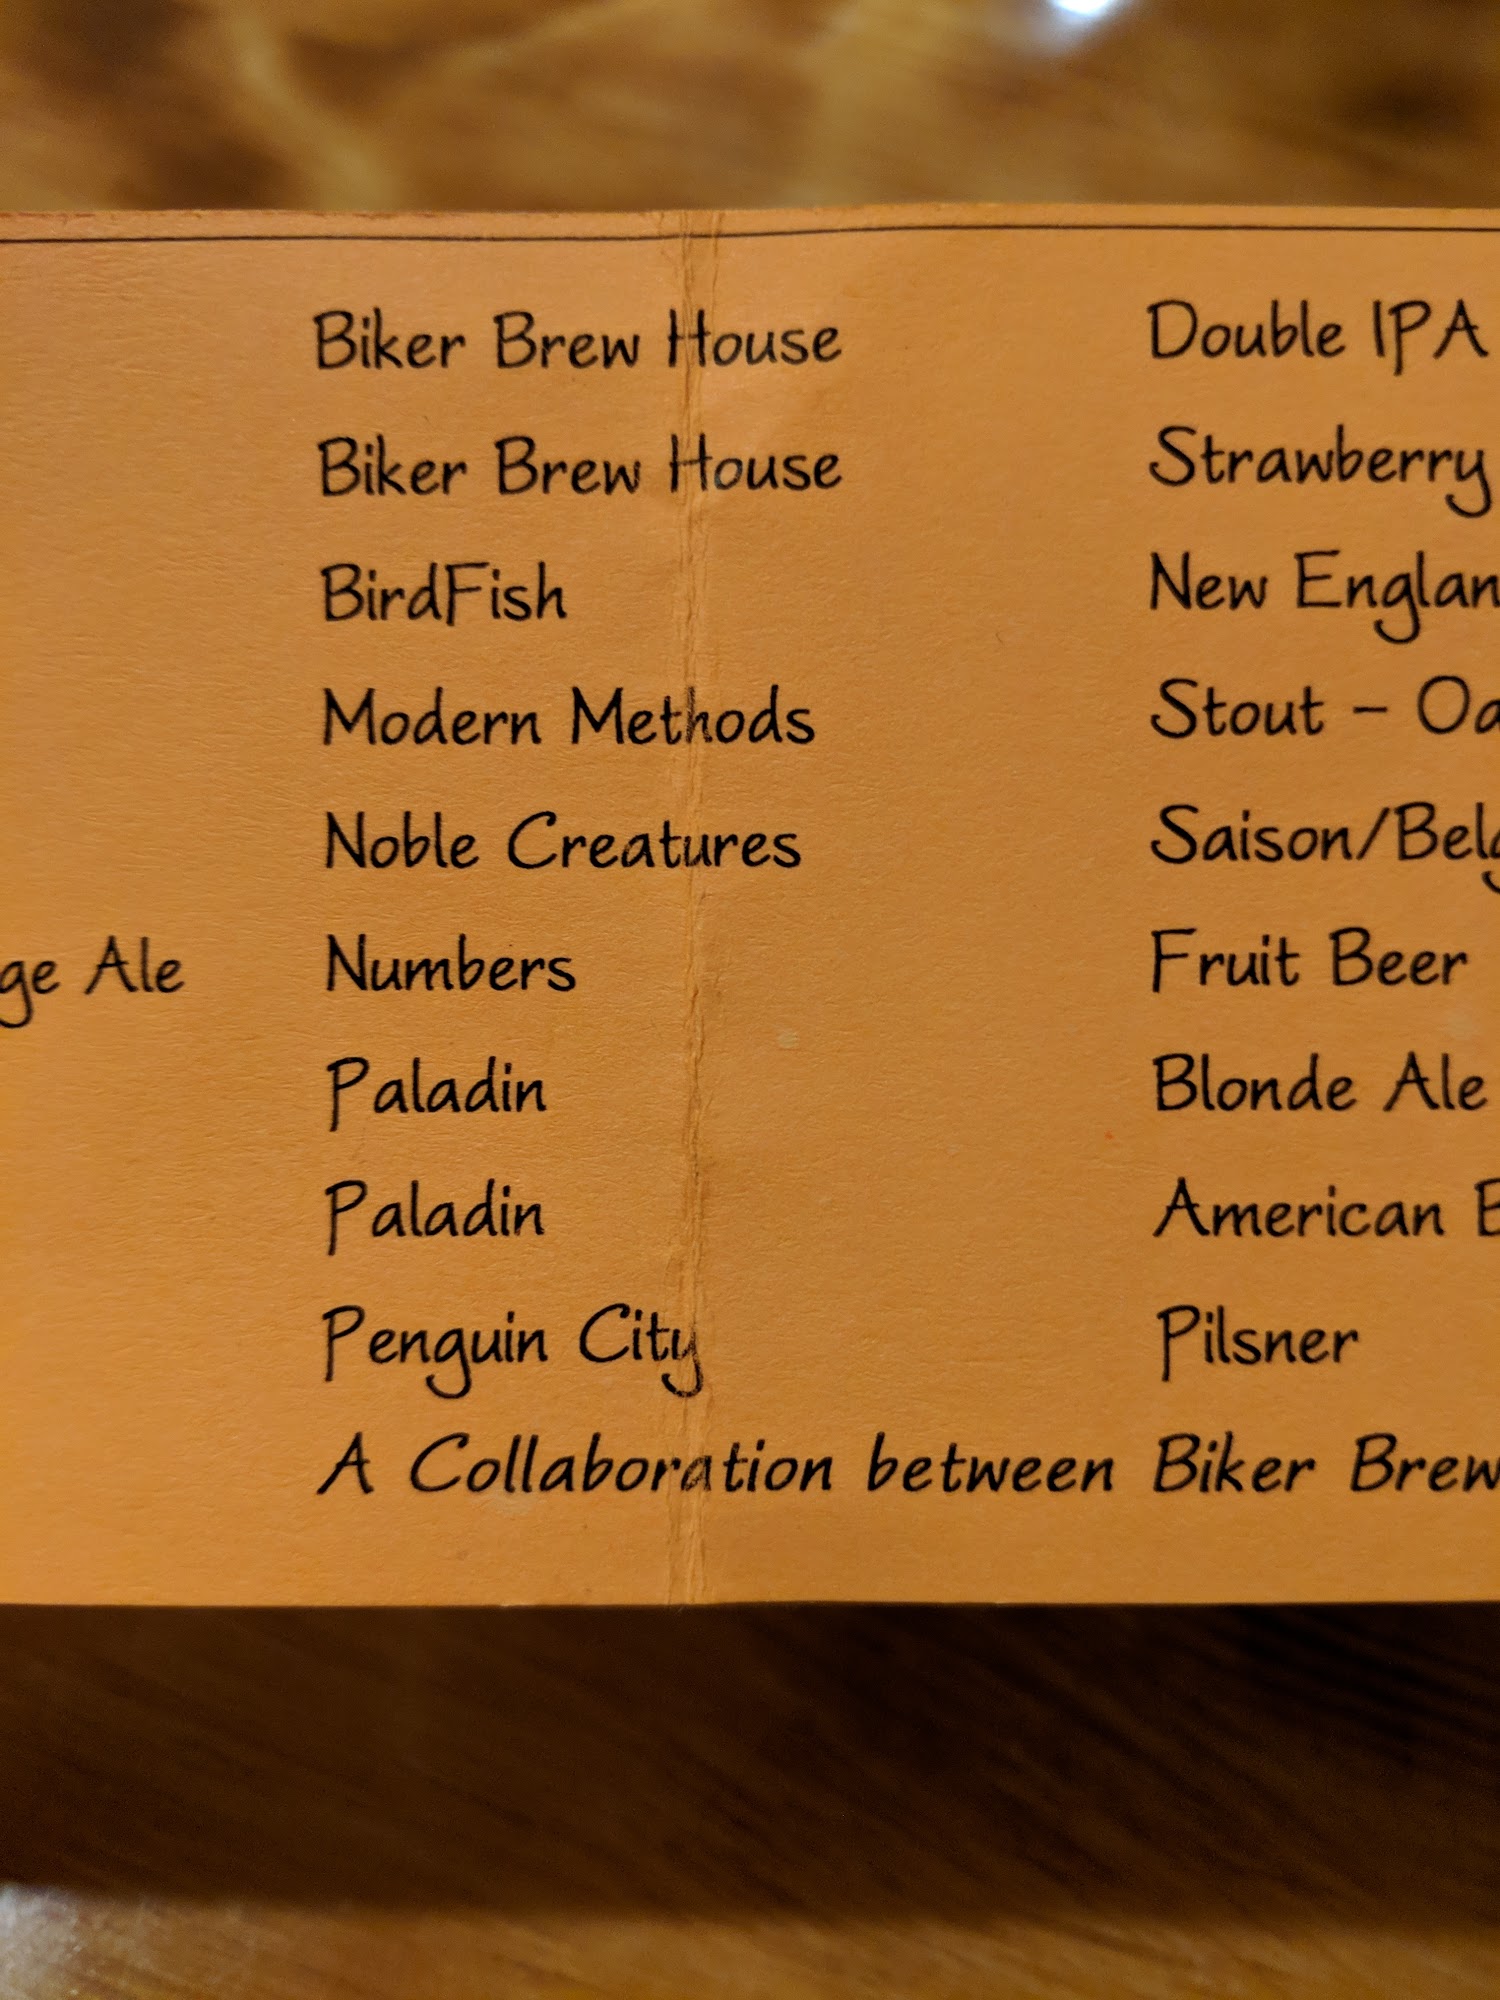 Biker Brew House Double IPA
Biker Brew House Strawberry
BirdFish New Englan
Modern Methods Stout – Oa
Noble Creatures Saison/Belg
ge Ale Numbers Fruit Beer
Paladin Blonde Ale
Paladin American
Penguin City Pilsner
A Collaboration between Biker Brew